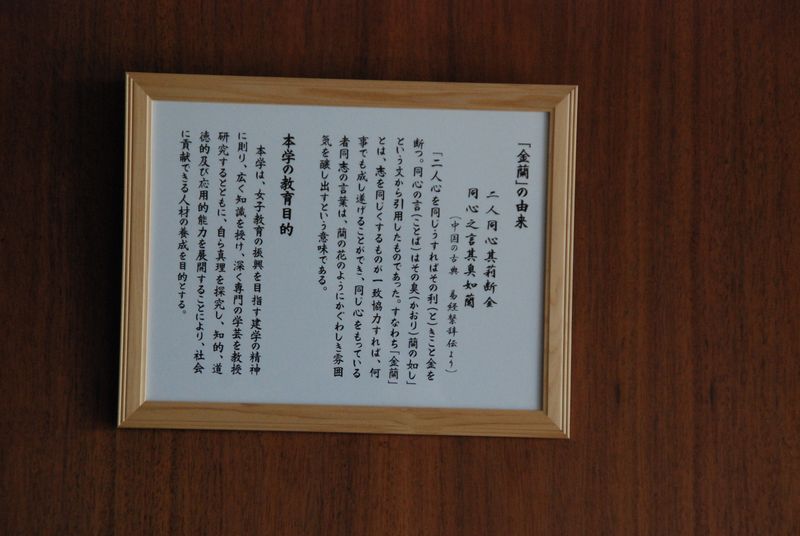 「金蘭」の由来
二人同心其莉断金
同心之言其臭如蘭
（中国の古典　易経繋辞伝より）
「二人心を同じうすればその利（と）きこと金を
断つ。同心の言（ことば）はその臭（かおり）蘭の如し」
という文から引用したものであった。すなわち「金蘭」
とは、志を同じくするものが一致協力すれば、何
事でも成し遂げることができ、同じ心をもっている
者同志の言葉は、蘭の花のようにかぐわしき雰囲
気を醸し出すという意味である。
本学の教育目的
本学は、女子教育の振興を目指す建学の精神
に則り、広く知識を授け、深く専門の学芸を教授
研究するとともに、自ら真理を探究し、知的、道
徳的及び応用的能力を展開することにより、社会
に貢献できる人材の養成を目的とする。